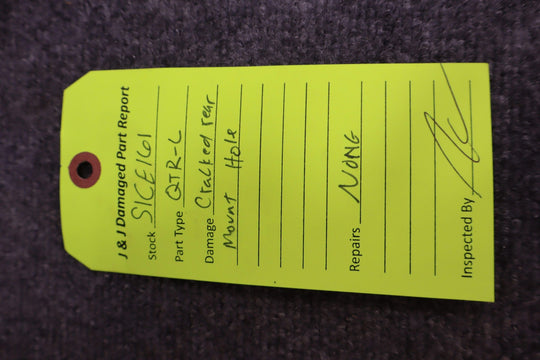 J & J Damaged Part Report
Stock S1CE161
Part Type QTR-L
Damage Cracked rear
Mount Hole
Repairs NONG
Inspected By